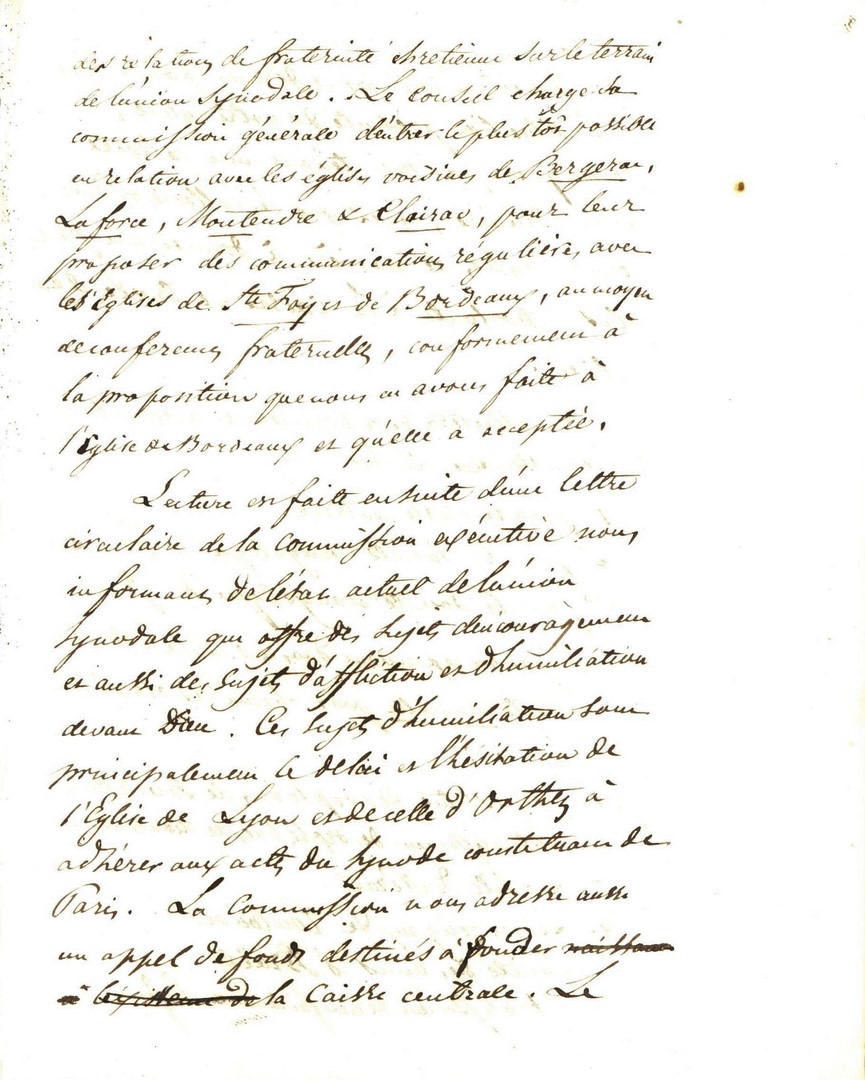 des relations de fraternité chretienne sur le terrain
de l'union synodale. Le conseil charge sa
commission générale d'entrer le plus tôt possible
en relation avec les églises voisines de Bergerac,
Laforce, Montendre & Clairac, pour leur
proposer des communications régulières avec
les Eglises de Ste Foy et de Bordeaux, au moyen
de conferences fraternelles, conformement à
la proposition que nous en avons faite à
l'Eglise de Bordeaux et qu'elle a acceptée.
Lecture est faite ensuite d'une lettre
circulaire de la commission exécutive nous
informant de l'état actuel de l'union
synodale qui offre des sujets d'encouragement
et aussi des sujets d'affliction et d'humiliation
devant Dieu. Ces sujets d'humiliation sont
principalement le délai et l'hésitation de
l'Eglise de Lyon et de celle d'Orthez à
adhérer aux actes du Synode constituant de
Paris. La Commission nous adresse aussi
un appel de fonds destinés à fonder
la Caisse centrale. Le